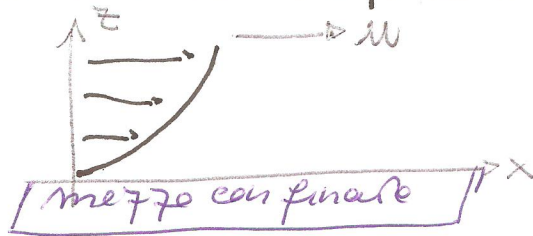 z
u
x
mezzo confinante